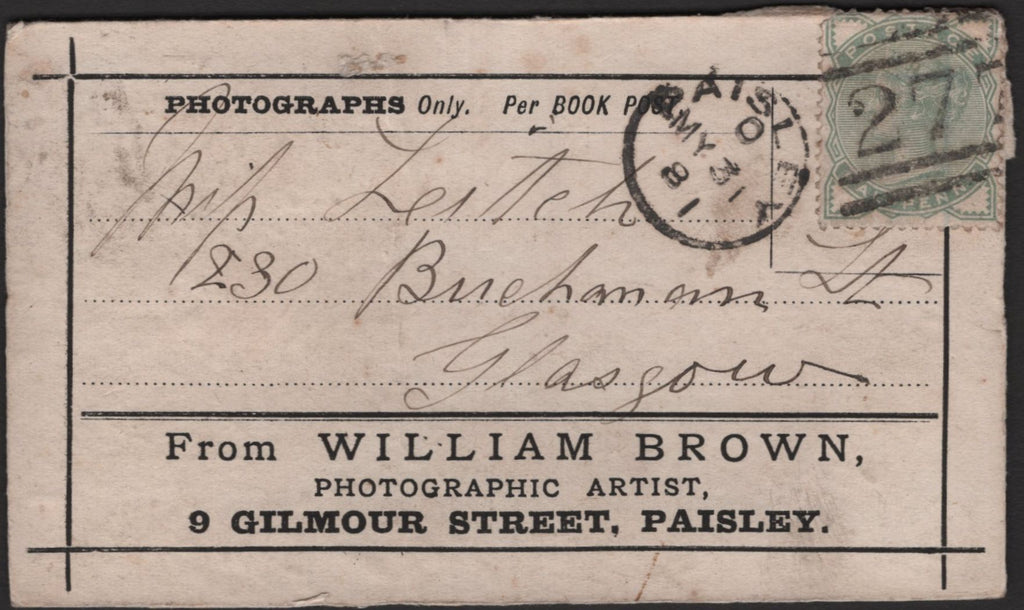 PHOTOGRAPHS Only. Per BOOK POST.
PAISLEY
O
MY 31
81
POSTAGE
27
Miss Leitch
230 Buchanan St
Glasgow
From WILLIAM BROWN,
PHOTOGRAPHIC ARTIST,
9 GILMOUR STREET, PAISLEY.